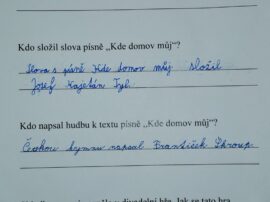 Kdo složil slova písně „Kde domov můj“?
Slova s písně Kde domov můj složil
Josef Kajetán Tyl.
Kdo napsal hudbu k textu písně „Kde domov můj“?
Českou hymnu napsal František Škroup.
divadelní hře. Jak se tato hra